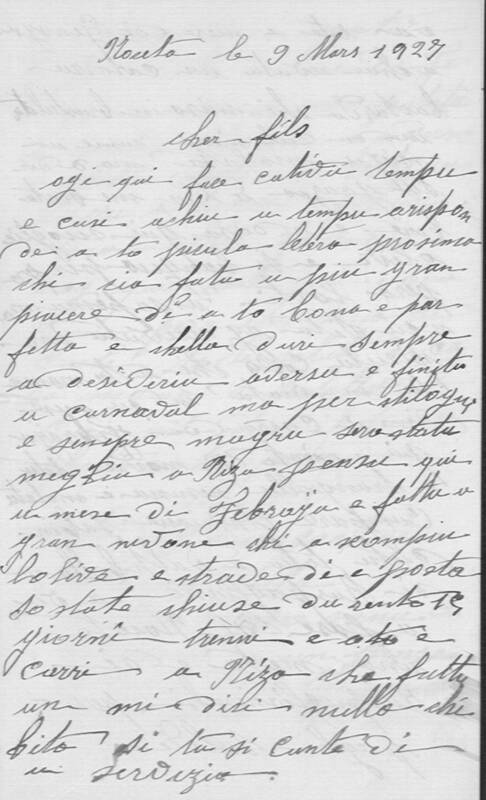 Noceta le 9 Mars 1927
cher fils
ogi qui face cativu tempu
e cusi achiu u tempu arispon
de a to picula letera prosima
chi sia fatu u piu gran
piacere de a to bona e par
fetta e chella duri sempre
a desideriu aversu e finitu
u carnaval ma per
e sempre magru sera statu
megliu a Niza pensu qui
u mese di Febraja e fattu a
gran nevone chi a rompiu
l'olive e strade di e posta
so state chiuse durento 15
giorni trenni e oto e
carri a Niza che fattu
un mi dici nullo chi
bito si tu si cuntedi
u servizio.